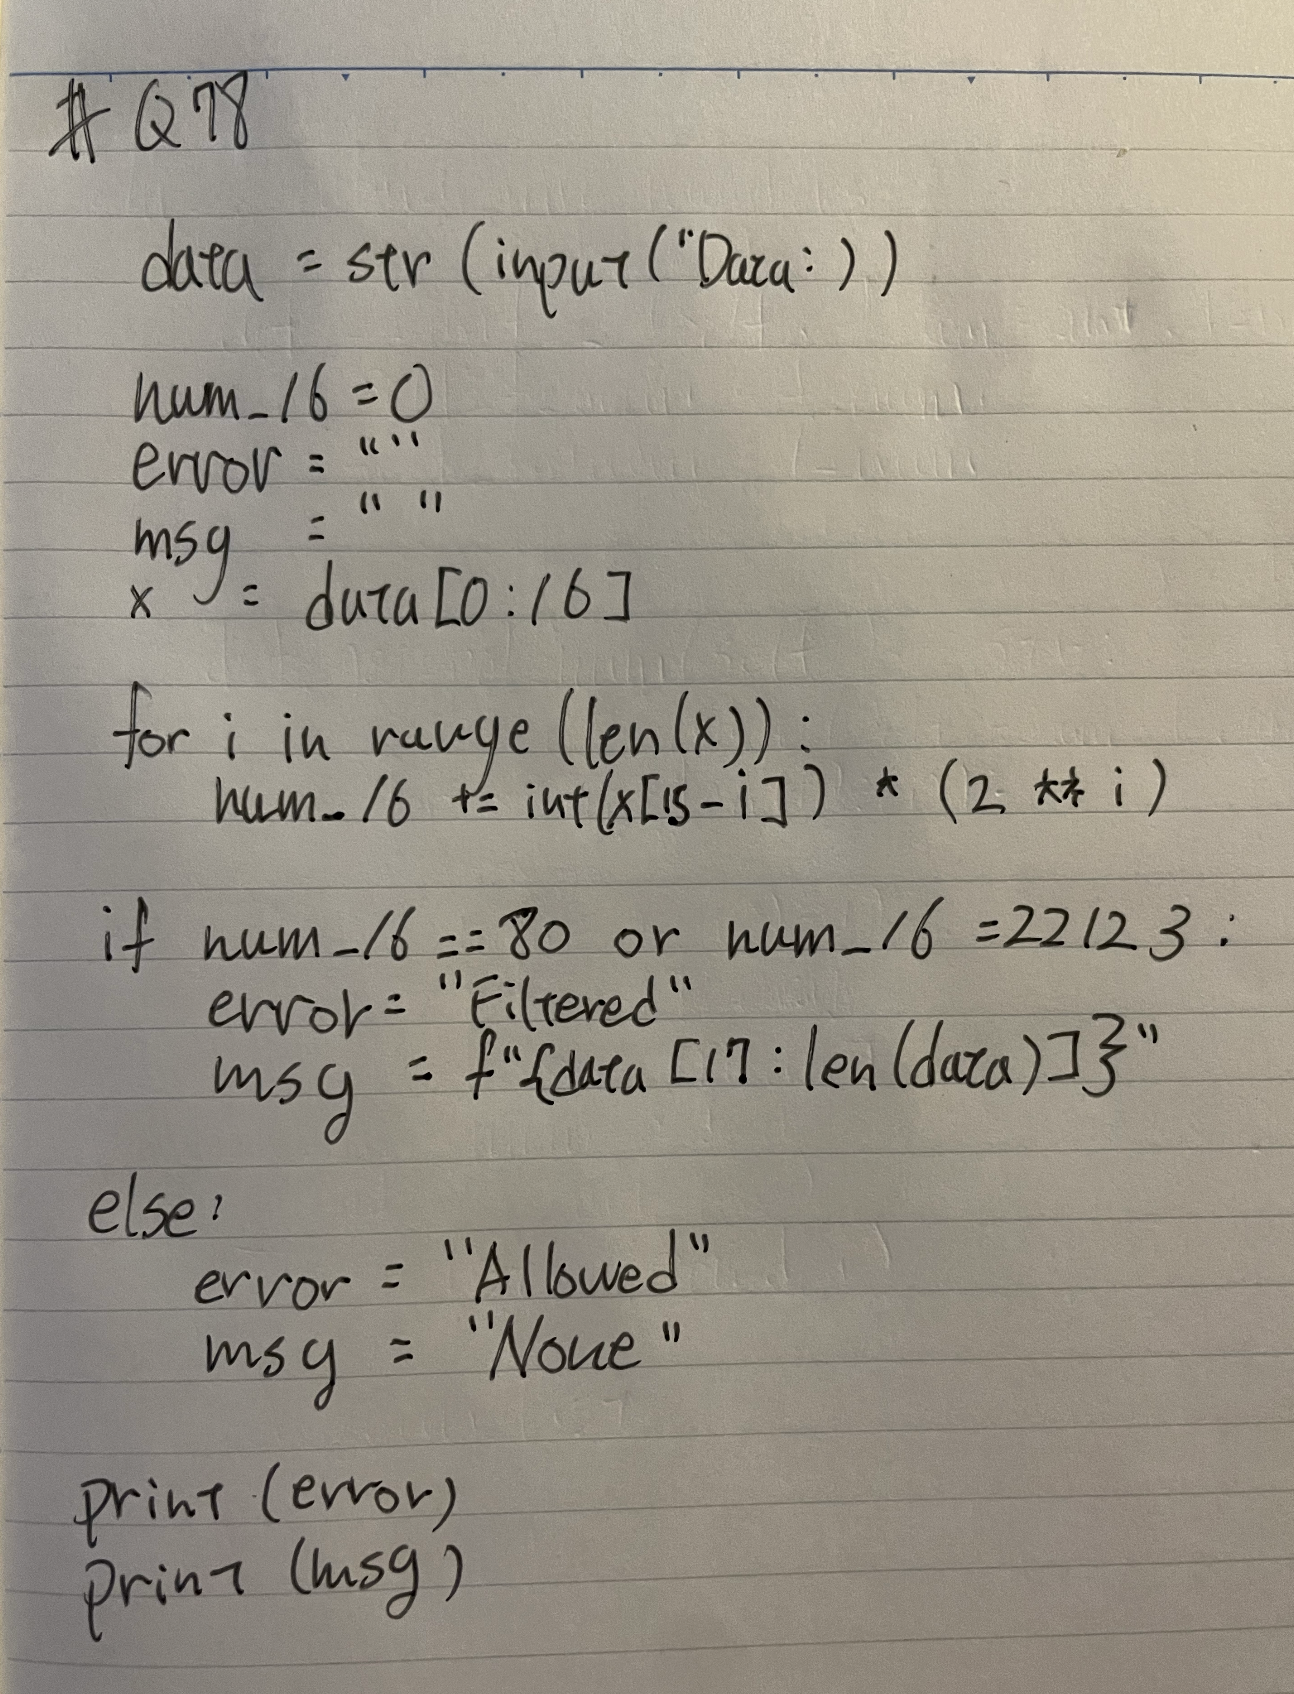 # Q78
data = str (input ("Data: ) )
num_16 = 0
error = ""
msg = " "
x = data [0:16]
for i in range (len(x)) :
num_16 += int(x[15-i]) * (2 ** i)
if num_16 == 80 or num_16 =22123 :
error= "Filtered"
msg = f"{data [17 : len(data)]}"
else:
error = "Allowed"
msg = "None"
print (error)
print (msg)